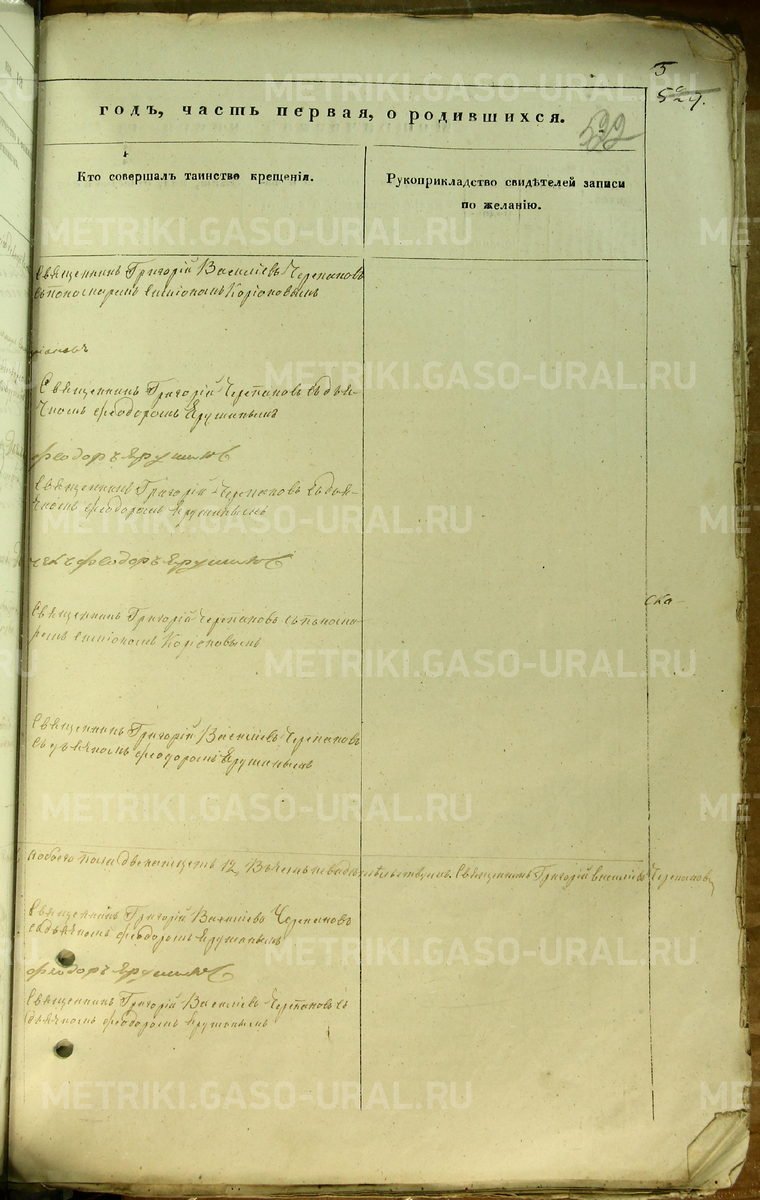 5
529.
годъ, часть первая, о родившихся.
592
Кто совершалъ таинство крещенія.
Рукоприкладство свидѣтелей записи
по желанію.
Священникъ Григорій Василіевъ Черепановъ
съ пономаремъ Симіономъ
Священникъ Григорій Черепановъ съ дья-
чкомъ Феодоромъ Ерушинымъ
Феодоръ Ерушин
Священникъ Григорій Черепановъ съ дья-
чкомъ Феодоромъ Ерушинымъ
Феодоръ Ерушин
ска-
Священникъ Григорій Черепановъ съ понома-
ремъ Симіономъ
Священникъ Григорій Василіевъ Черепановъ
съ дьячкомъ Феодоромъ Ерушинымъ
обоего пола двенатцеть 12, Священникъ Григорій Василіевъ Черепановъ
Священникъ Григорій Василіевъ Черепановъ
съ дьячкомъ Феодоромъ Ерушинымъ
Феодоръ Ерушин
Священникъ Григорій Василіевъ Черепановъ съ
дьячкомъ Феодоромъ Ерушинымъ
METRIKI.GASO-URAL.RU